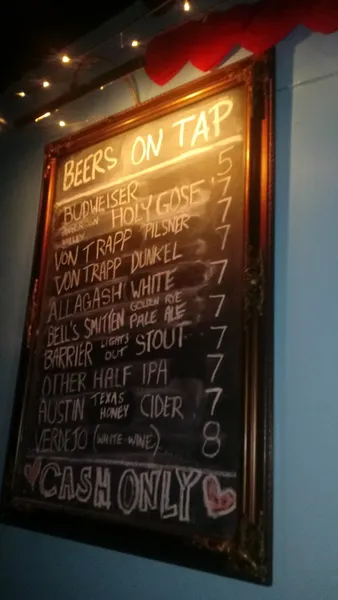 BEERS ON TAP
BUDWEISER 5
ANDERSON VALLEY HOLY GOSE 7
VON TRAPP PILSNER 7
VON TRAPP DUNKEL 7
ALLAGASH WHITE 7
BELL'S SMITTEN GOLDEN RYE PALE ALE 7
BARRIER LIGHTS OUT STOUT 7
OTHER HALF IPA 7
AUSTIN TEXAS HONEY CIDER 7
VERDEJO (WHITE WINE) 8
CASH ONLY